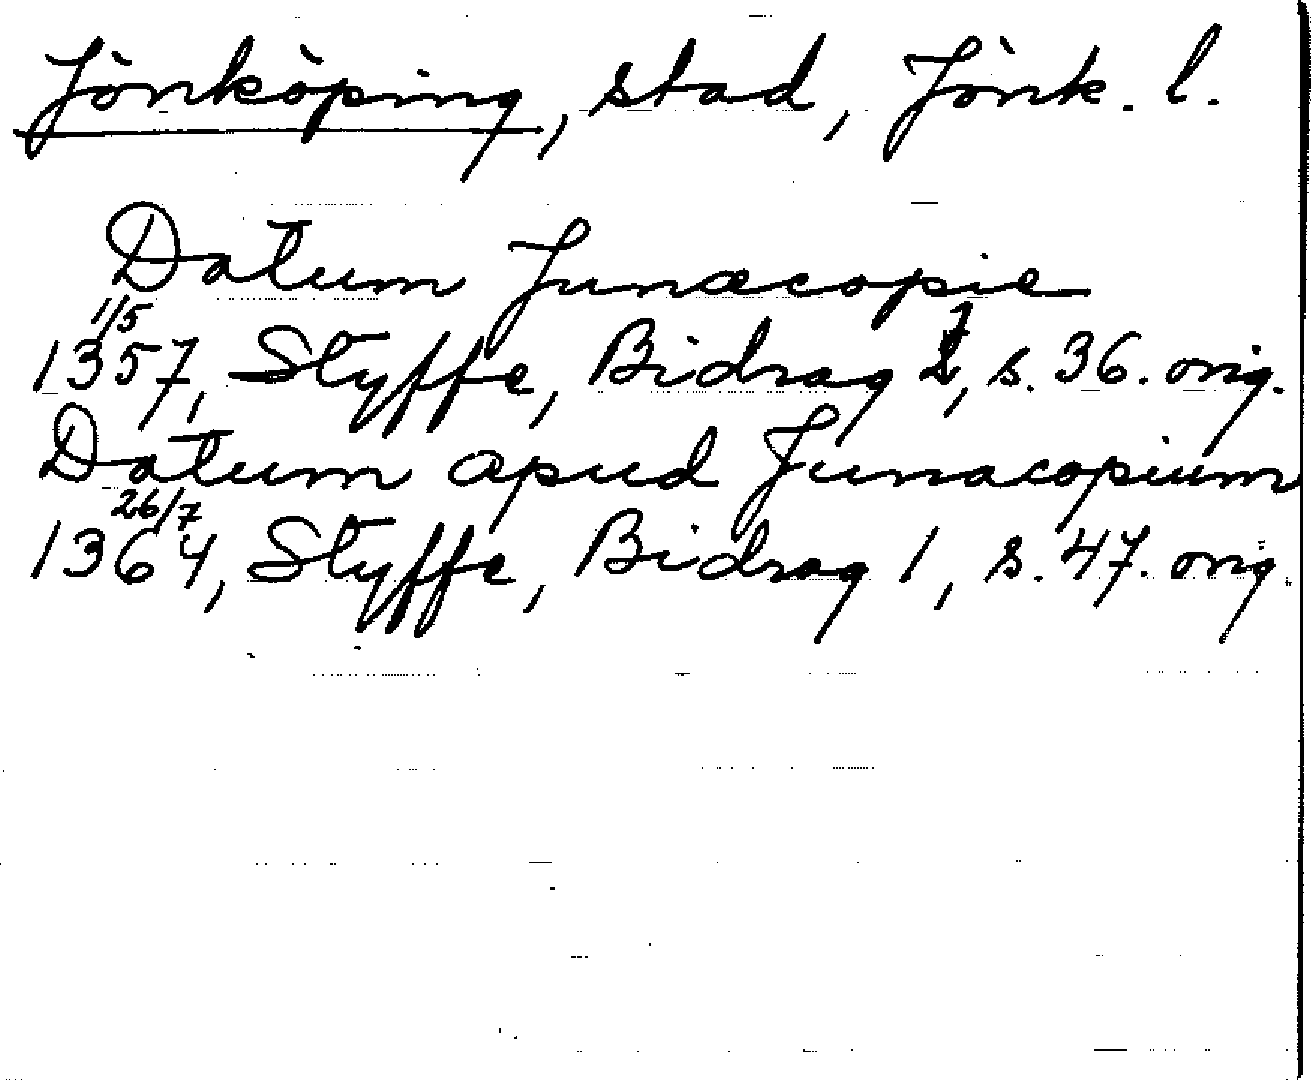 Jönköping, stad, Jönk. l.
Datum Junæcopie
1/5
1357, Styffe, Bidrag 1, s. 36. orig.
Datum apud Junacopium
26/7
1364, Styffe, Bidrag 1, s. 47. orig.